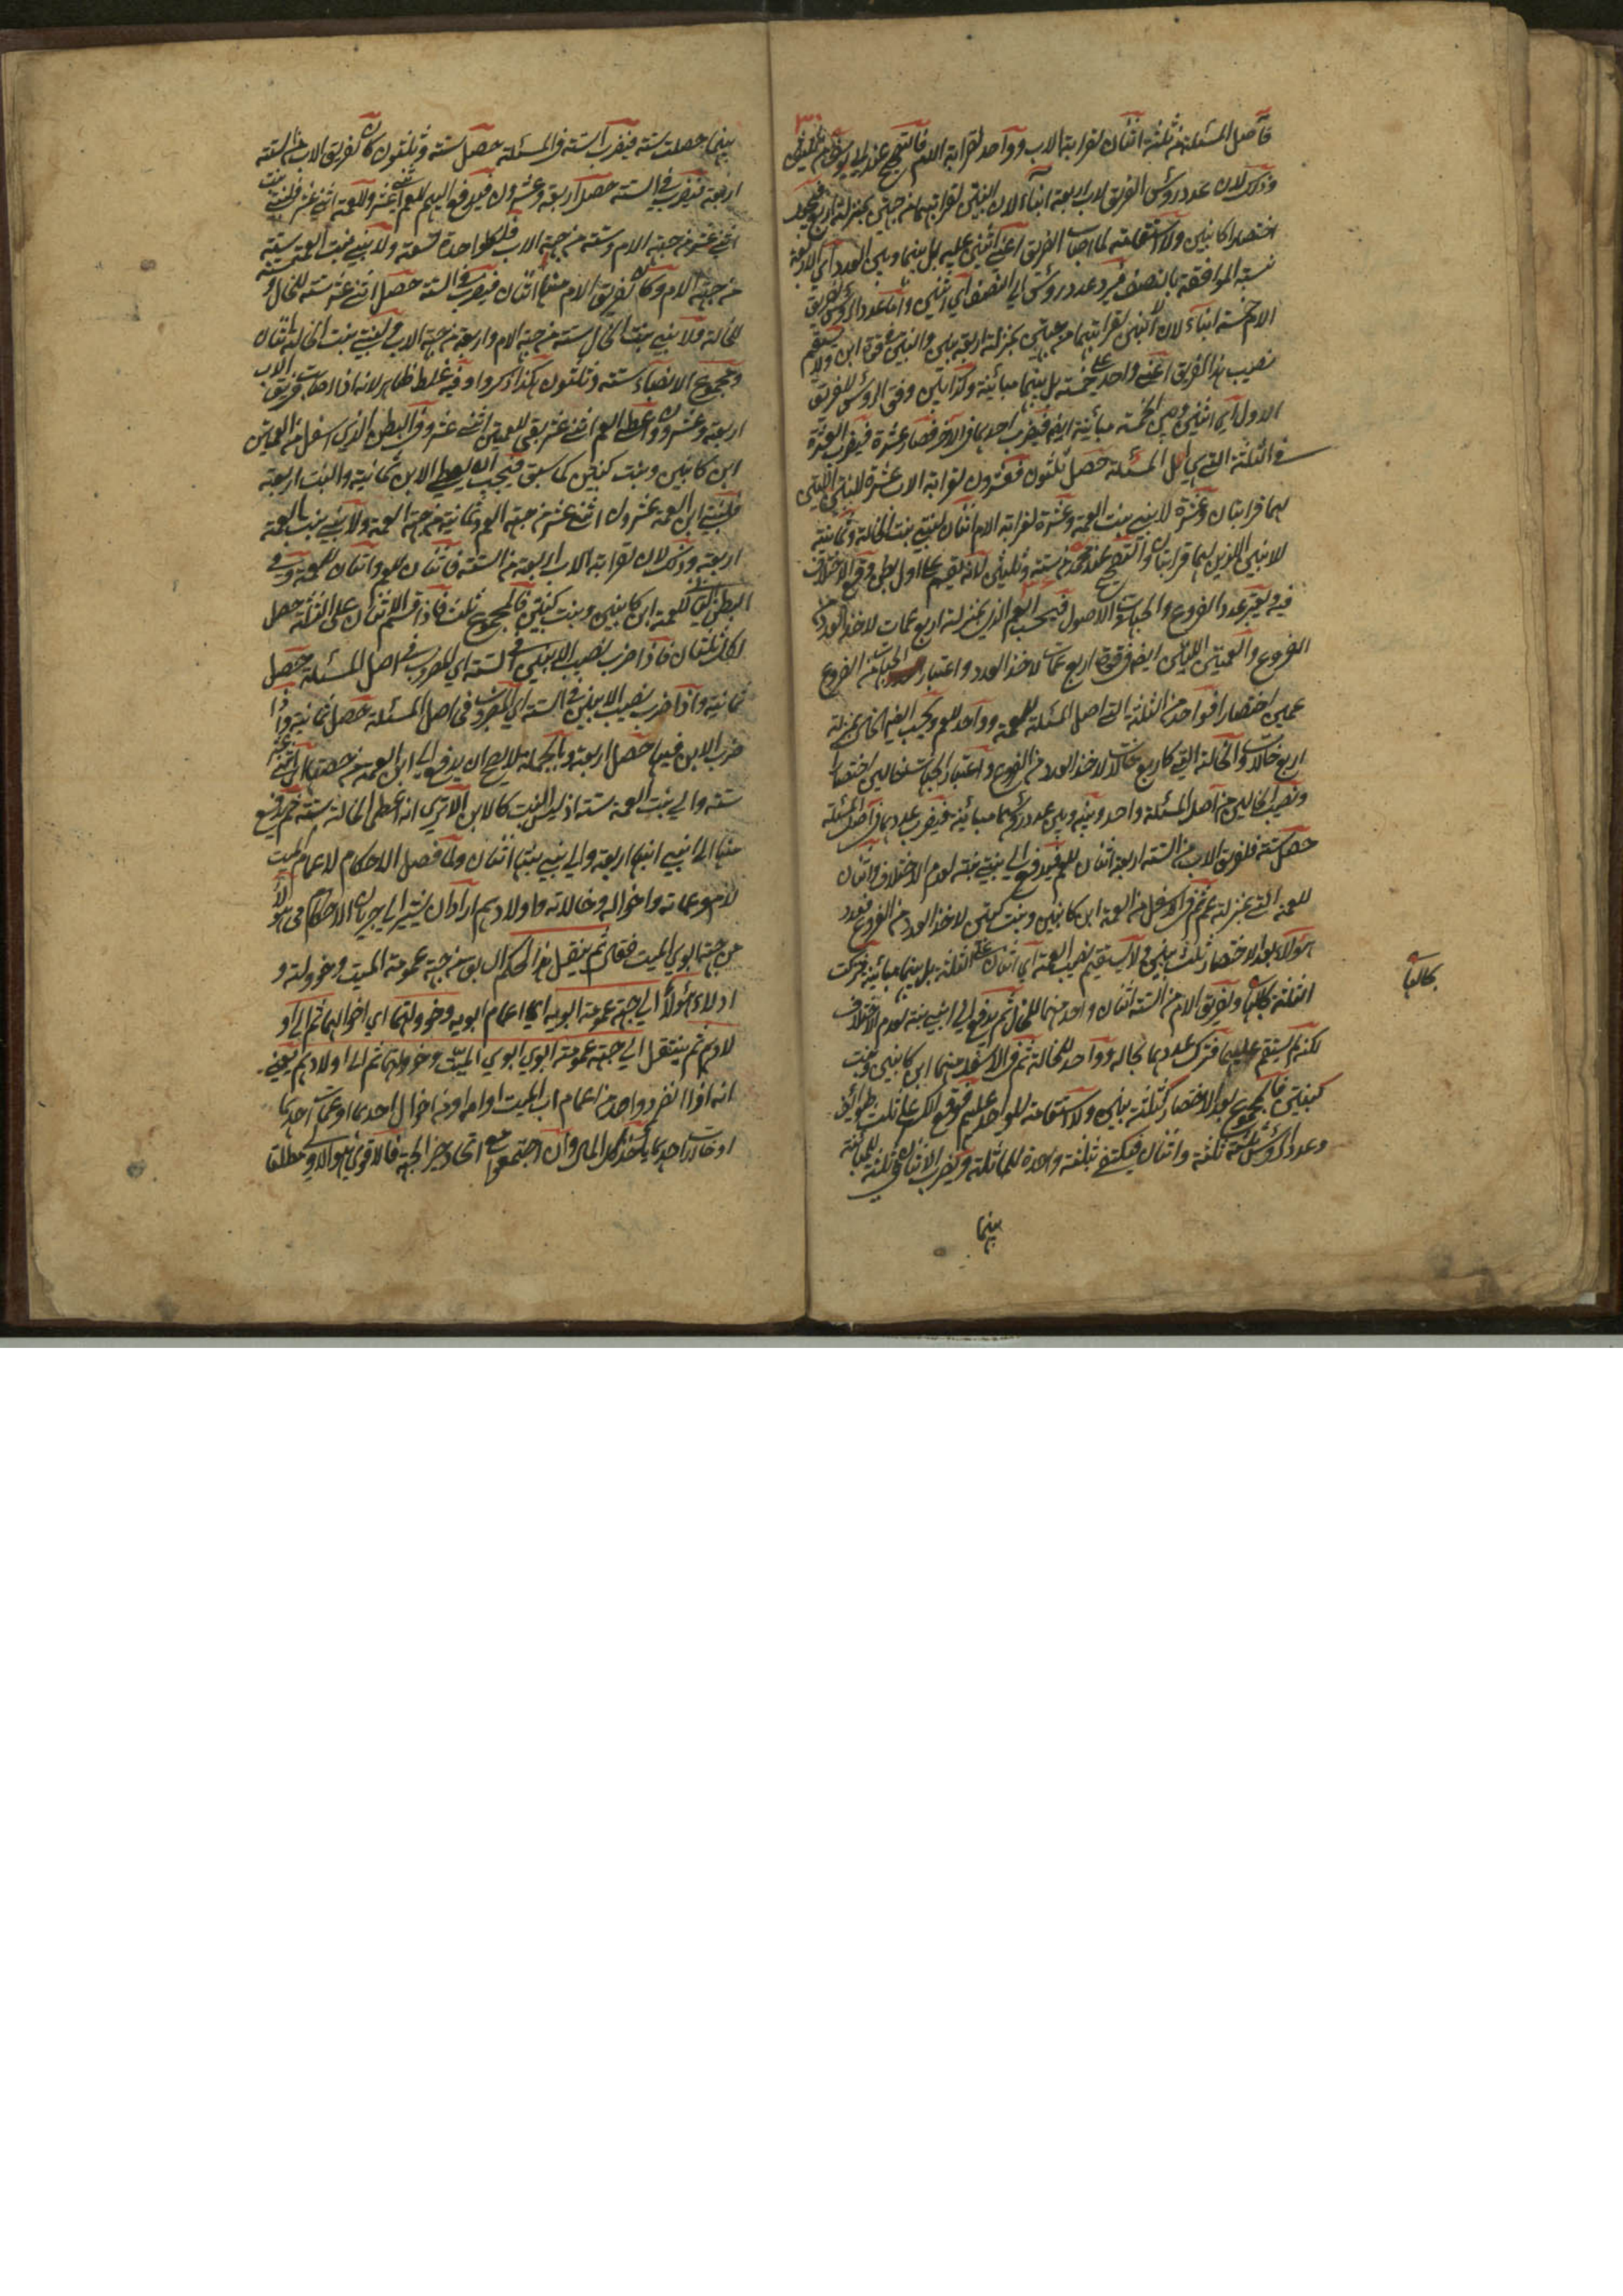 فاصل المسئلة من ثلثة اثنان لقرابة الاب وواحد لقرابة الام فالتصحيح عند ابي يوسف من ثلثين
وذلك لان عدد رؤس الفريق الاب اربعة ابناء لان البنتين لقرابتهما من جهتين بمنزلة اربع
اختصارا كابنين ولا استقامة لما اصاب الفريق اعني اثنين عليه بل بينهما وبين العدد اي الاربعة
نسبة الموافقة بالنصف فيرد عدد رؤس الى النصف اي اثنين واما عدد الرؤس لفريق
الام خمسة ابناء لان الابنين لقرابتهما من جهتين بمنزلة اربعة بنين والبنتين في قوة ابن ولا يستقيم
نصيب هذا الفريق اعني واحد على خمسة بل بينهما مباينة وكذا بين وفق الرؤس للفريق
الاول اي اثنين وبين الخمسة مباينة ايضا فيضرب احدهما في الآخر فصار عشرة فيضرب العشرة
في الثلثة التي هي اصل المسئلة حصل ثلثون فعشرون لقرابة الاب عشرة للبنتين اللتين
لهما قرابتان وعشرة لابني بنت العمة وعشرة لقرابة الام اثنان لبنتي بنت الخالة وثمانية
لابنين اللذين لهما قرابتان والتصحيح عند محمد من ستة وثلثين لانه يقسم على اول بطن وقع الاختلاف
فيه ويعتبر عدد الفروع والجهات في الاصول فيحسب العم الذي بمنزلة اربع عمات لاخذ العدد من
الفروع والعمتين اللتين ايضا في قوة اربع عمات لاخذ العدد واعتبار الجهات من الفروع
عمين اختصارا فواحد من الثلثة التي اصل المسئلة للعمة وواحد للعم ويحسب ايضا الخال بمنزلة
اربع خالات والخالة التي كاربع خالات لاخذ العدد من الفروع واعتبار الجهات خالين اختصارا
ونصيب الخالين من اصل المسئلة واحد وبينه وبين عدد رؤسهما مباينة فيضرب عددهما في اصل المسئلة
حصل ستة فلفريق الاب من الستة اربعة اثنان للعم فيدفع الى بنتي بنته لعدم الاختلاف واثنان
للعمة التي بمنزلة عم ثم في الاسفل من العمة ابن كابنين وبنت كبنتين لاخذ العدد من الفروع فعدد
هؤلاء بعد الاختصار ثلث بنين ولا يستقيم نصيب العمة اي اثنان على الثلثة بل بينهما مباينة فتركت
الثلثة بحالها ولفريق الام من الستة اثنان واحد منهما للخال ثم يدفع الى ابني بنته لعدم الاختلاف
لكنه لم يستقم عليهما فترك عددهما بحاله وواحد للخالة ثم في الاسفل منهما ابن كابنين وبنت
كبنتين فالمجموع بعد الاختصار كثلثة بنين ولا استقامة للواحد عليهم فوقع الكسر على ثلث طوائف
وعدد الرؤس ثلثة ثلثة واثنان فيكتفي بثلثة واحدة للمماثلة ويضرب الاثنان في ثلثة للمباينة
بينهما
بحالها
بينهما حصلت ستة فيضرب الستة في المسئلة حصل ستة وثلثون كان لفريق الاب من الستة
اربعة فيضرب في الستة حصل اربعة وعشرون فيدفع اليهم للعم اثني عشر وللعمة اثني عشر فلبنتي بنت
اثني عشر من جهة الام وستة من جهة الاب فلكل واحدة تسعة ولابني بنت العمة ستة
من جهة الام وكان لفريق الام منها اثنان فيضرب في الستة حصل اثنى عشر ستة للخال و
للخالة فلابني بنت الخال ستة من جهة الام واربعة من جهة الاب ولبنتي بنت الخالة اثنان
ومجموع الانصباء ستة وثلثون هكذا ذكروا وفيه غلط ظاهر لانه اذا اصاب فريق الاب
اربعة وعشرون واعطى العم اثني عشر بقي للعمتين اثني عشر وفي البطن الذي اسفل من العمتين
ابن كابنين وبنت كبنتين كما سبق فيجب ان يعطى الابن ثمانية والبنت اربعة
فلبنتي ابن العمة عشرون اثني عشر من جهة العم وثمانية من جهة العمة ولابني بنت العمة
اربعة وذلك لان لقرابة الاب اربعة من الستة فاثنان للعم واثنان للعمة وفي
البطن الثاني للعمة ابن كابنين وبنت كبنتين فالمجموع ثلث فاذا قسم الاثنان على الثلثة حصل
لكل ثلثان فاذا ضرب نصيب الابنين في الستة اي المضروب في اصل المسئلة حصل
ثمانية واذا ضرب نصيب الابنين في الستة اي المضروب في اصل المسئلة حصل ثمانية واذا
ضرب الابن فيها حصل اربعة وبالجملة لا يصح ان يدفع الى ابن العمة من حصتها اي اثني عشر
ستة والى بنت العمة ستة اذ ليس البنت كالابن الا ترى انه اعطى الخالة ستة ثم دفع
منها الى ابني ابنها اربعة والى بنتي بنتها اثنان ولما فصل الاحكام لاعمام الميت
لام وعماته واخواله وخالاته واولادهم اراد ان يشير الى جريان الاحكام في هؤلاء
من جهة ابوي الميت فقال ثم ينتقل هذا الحكم الى جهة عمومة الميت وخؤولته و
اولاد هؤلاء الى جهة عمومة ابويه اي اعمام ابويه وخؤولتهما اي اخوالهما ثم الى او
لادهم ثم ينتقل الى جهة عمومة ابوي ابوي الميت وخؤولتهما ثم الى اولادهم يعني
انه اذا انفرد واحد من اعمام اب الميت او امه او من اخوال احدهما او عمات احدهما
او خالات احدهما ياخذ كل المال وان اجتمعوا مع اتحاد حيز الجهة فالاقوى هو الاولى مطلقا